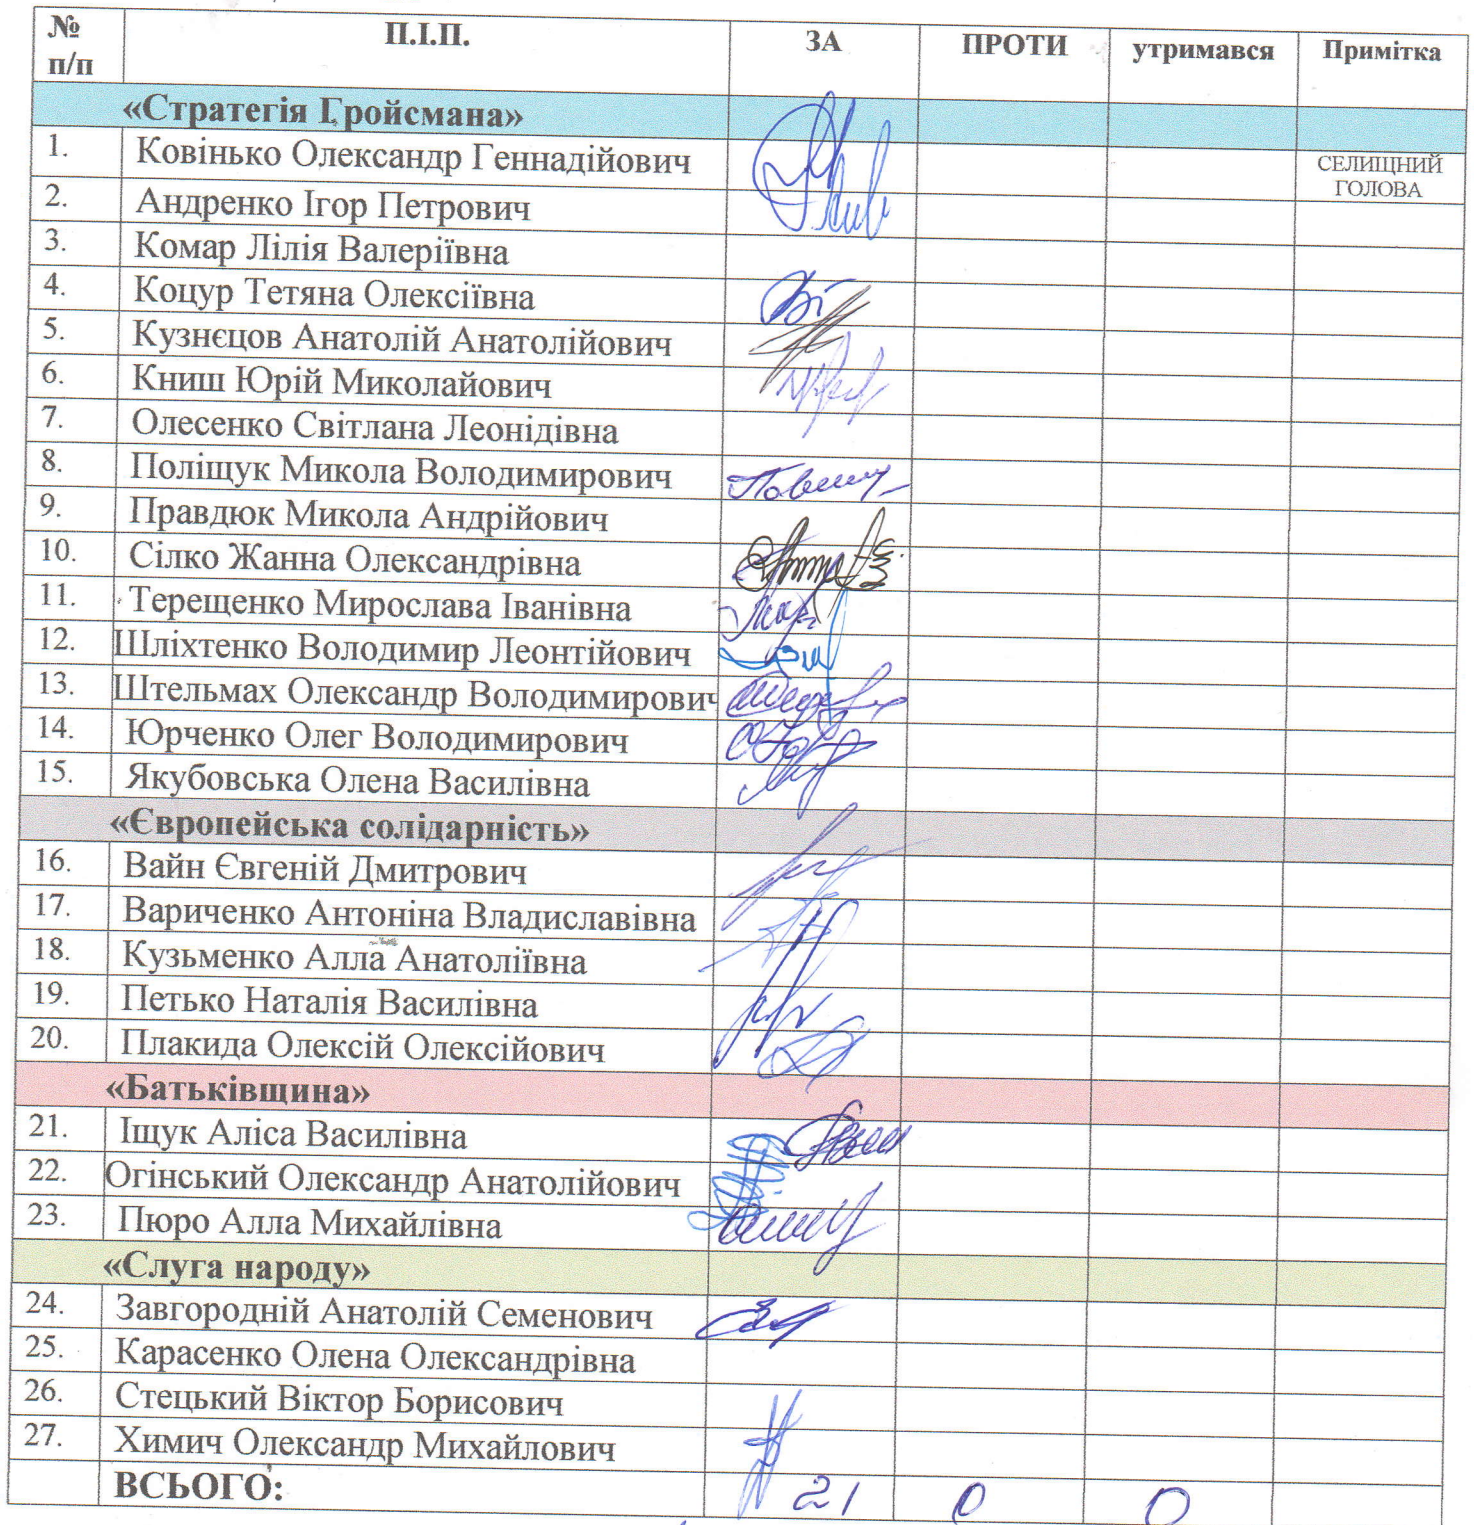 № п/п П.І.П. ЗА ПРОТИ утримався Примітка
«Стратегія Гройсмана»
1. Ковінько Олександр Геннадійович СЕЛИЩНИЙ ГОЛОВА
2. Андренко Ігор Петрович
3. Комар Лілія Валеріївна
4. Коцур Тетяна Олексіївна
5. Кузнєцов Анатолій Анатолійович
6. Книш Юрій Миколайович
7. Олесенко Світлана Леонідівна
8. Поліщук Микола Володимирович
9. Правдюк Микола Андрійович
10. Сілко Жанна Олександрівна
11. Терещенко Мирослава Іванівна
12. Шліхтенко Володимир Леонтійович
13. Штельмах Олександр Володимирович
14. Юрченко Олег Володимирович
15. Якубовська Олена Василівна
«Європейська солідарність»
16. Вайн Євгеній Дмитрович
17. Вариченко Антоніна Владиславівна
18. Кузьменко Алла Анатоліївна
19. Петько Наталія Василівна
20. Плакида Олексій Олексійович
«Батьківщина»
21. Іщук Аліса Василівна
22. Огінський Олександр Анатолійович
23. Пюро Алла Михайлівна
«Слуга народу»
24. Завгородній Анатолій Семенович
25. Карасенко Олена Олександрівна
26. Стецький Віктор Борисович
27. Химич Олександр Михайлович
ВСЬОГО: 21 0 0